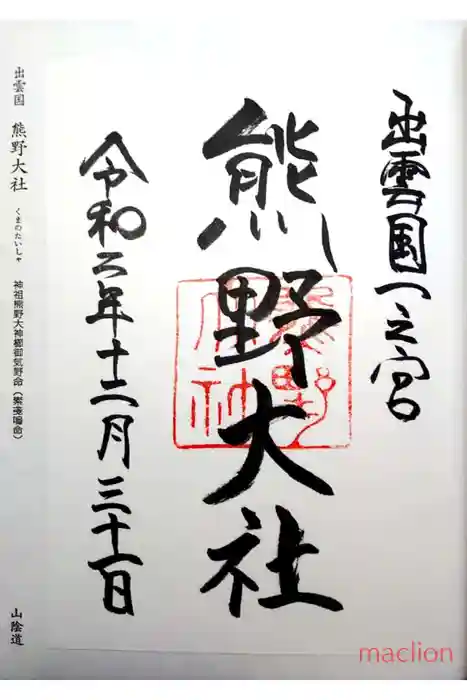 出雲国一之宮
熊野大社
熊野
大神
令和二年十二月三十一日
出雲国 熊野大社 くまのたいしゃ 神祖熊野大神櫛御気野命(素戔嗚命)
山陰道
maclion